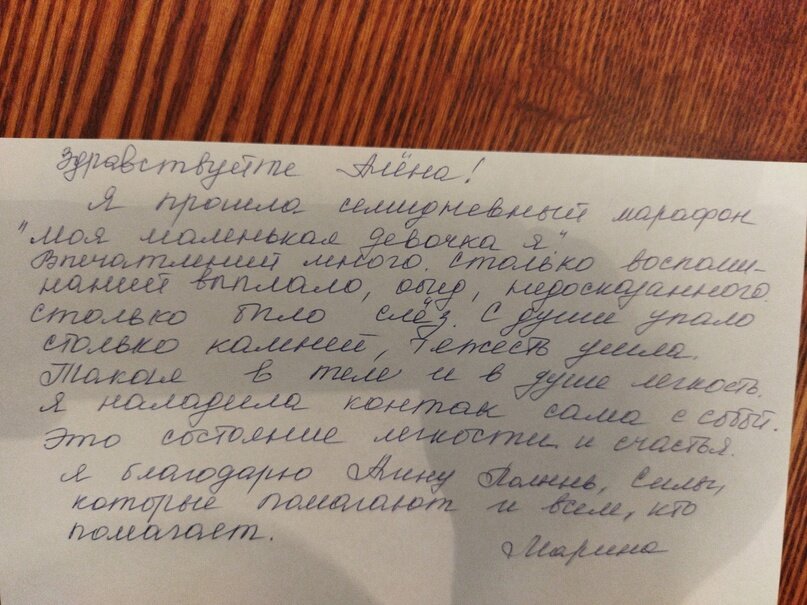 Здравствуйте Алёна!
Я прошла семидневный марафон
"Моя маленькая девочка я".
Впечатлений много. Столько воспоми-
наний выплало, обид, недосказанного.
Столько было слёз. С души упало
столько камней, тяжесть ушла.
Такая в теле и в душе легкость.
Я наладила контак сама с собой.
Это состояние легкости и счастья.
Я благодарю Алину, Силы,
которые помагают и всем, кто
помагает.
Марина